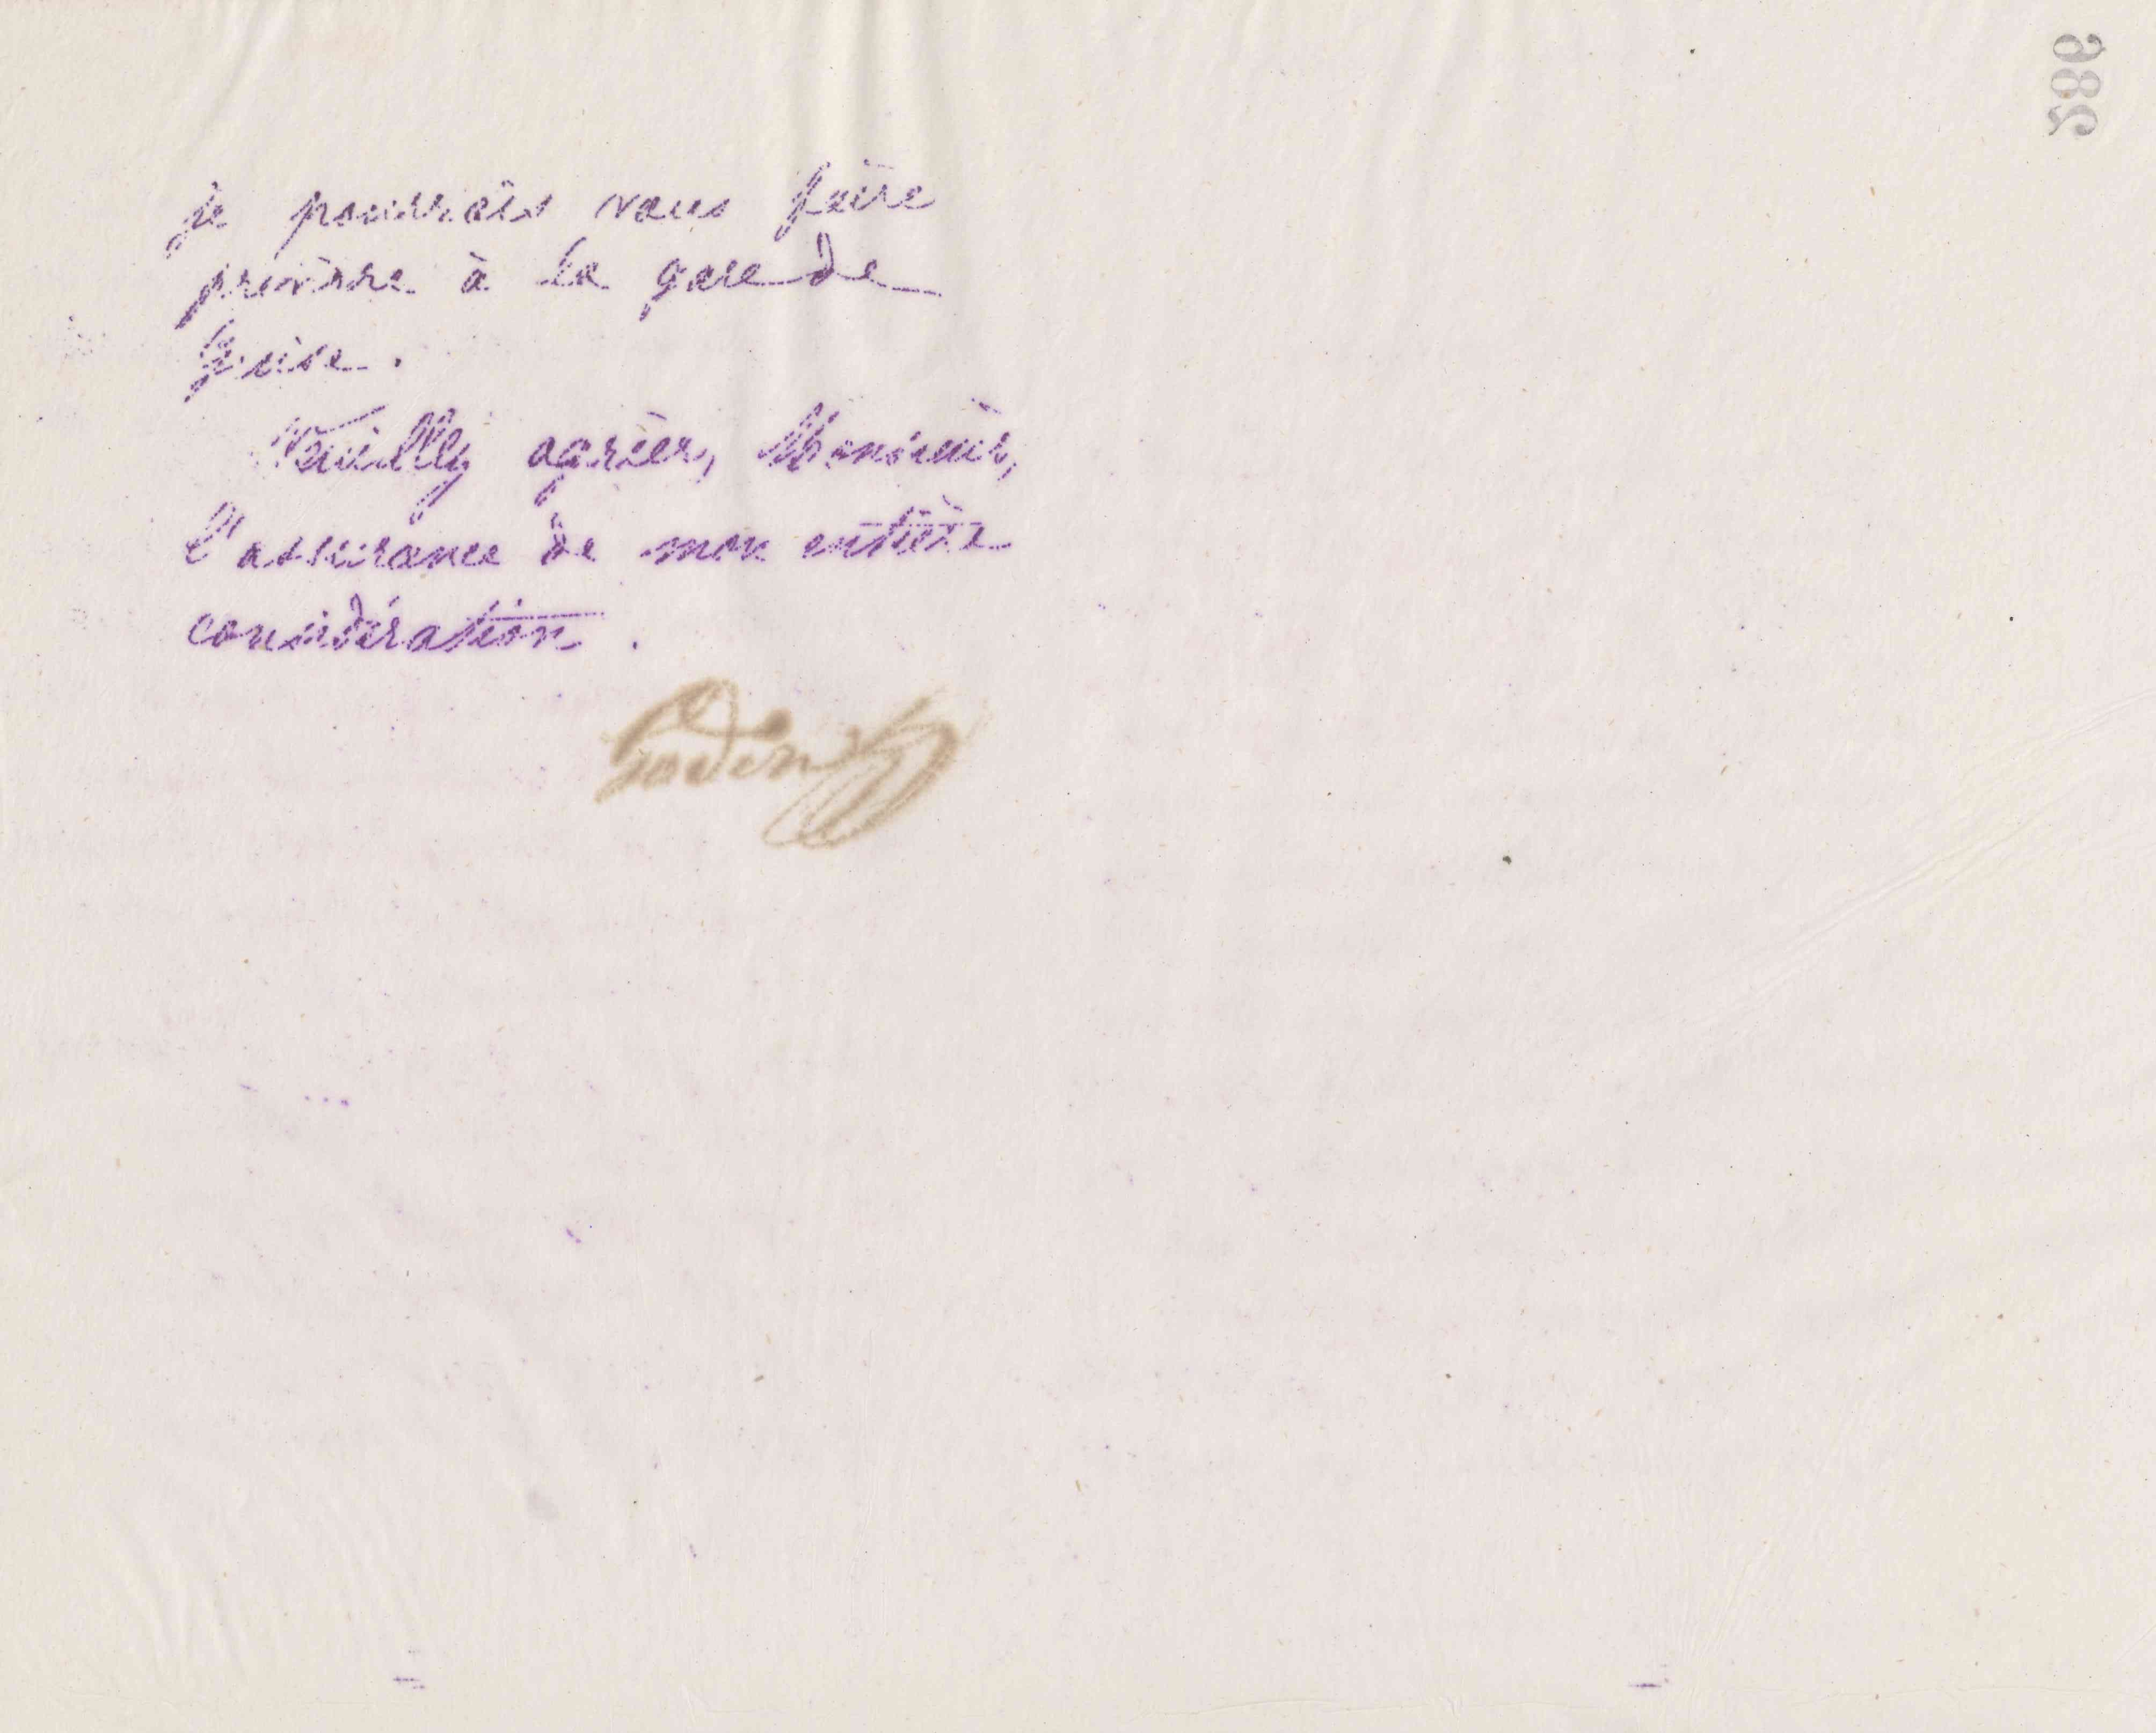 je pourrais vous faire
prendre à la gare de
Guise.
Veuillez agréer, Monsieur,
l'assurance de mon entière
considération.
Godin
286